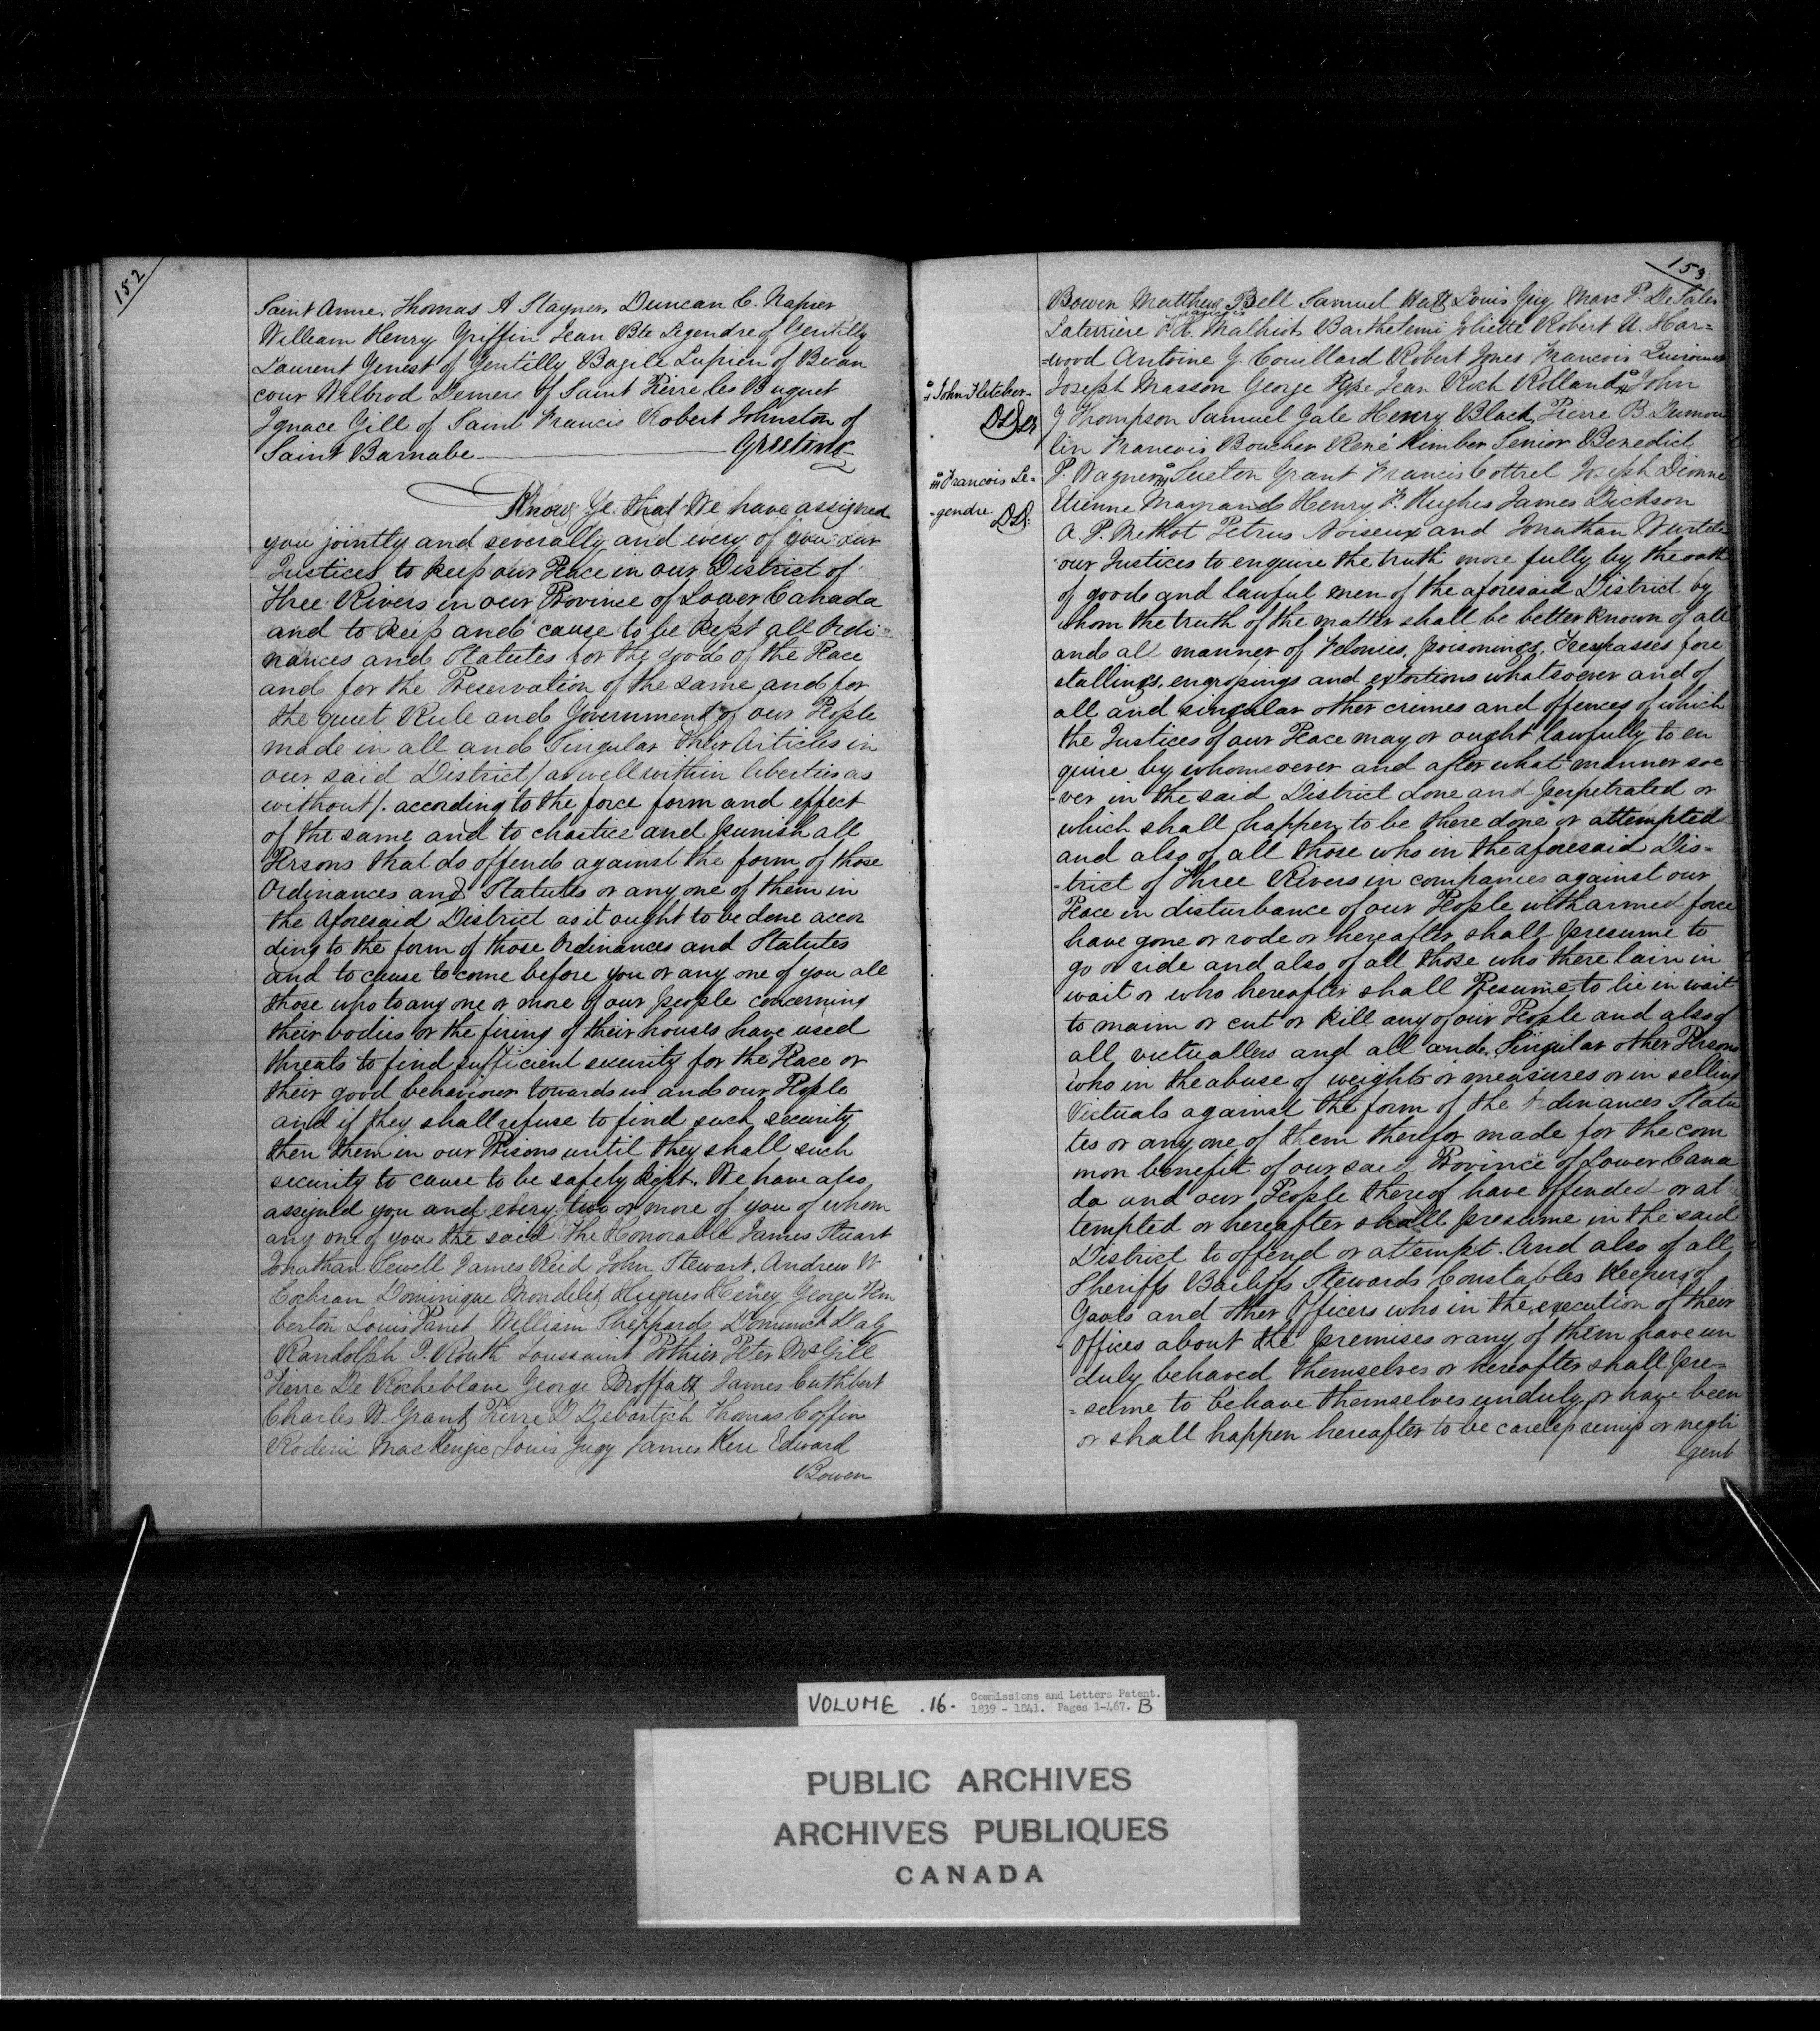 152
Saint Anne. Thomas A Stayner, Duncan C. Napier
William Henry Griffin Jean Bte Legendre of Gentilly
Laurent Genest of Gentilly Bazile Lupien of Becan
cour Wilbrod Demers of Saint Pierre les Buquet
Ignace Gill of Saint Francis Robert Johnston of
Saint Barnabe Greeting
Know Ye that We have assigned
you jointly and severally and every of you our
Justices to keep our Peace in our District of
Three Rivers in our Province of Lower Canada
and to keep and cause to be kept all Ordi=
nances and Statutes for the good of the Peace
and for the Preservation of the same and for
the quiet Rule and Government of our People
made in all and Singular their Articles in
our said District / as well within liberties as
without /. according to the force form and effect
of the same and to chastice and punish all
Persons that do offend against the form of those
Ordinances and Statutes or any one of them in
the aforesaid District as it ought to be done accor
ding to the form of those Ordinances and Statutes
and to cause to come before you or any one of you all
those who to any one or more of our people concerning
their bodies or the firing of their houses have used
threats to find sufficient security for the Peace or
their good behaviour towards us and our People
and if they shall refuse to find such security
then them in our Prisons until they shall such
security to cause to be safely kept. We have also
assigned you and every two or more of you of whom
any one of you the said The Honorable James Stuart
Jonathan Sewell James Reid John Stewart, Andrew W
Cochran Dominique Mondelet Hugues Heney George Pem
berton Louis Panet William Sheppard Dominick Daly
Randolph I. Routh Toussaint Pothier Peter McGill
Pierre De Rocheblave George Moffatt James Cuthbert
Charles W. Grant Pierre D Debartzch Thomas Coffin
Roderic MacKenzie Louis Gugy James Kerr Edward
Bowen
153
Bowen Matthew Bell Samuel Hatt Louis Guy Marc P. De Sales
Laterrière F. X. Malhiot Barthelemi Joliette Robert U. Har=
=wood Antoine G. Couillard Robert Jones Francois Quirouet
Joseph Masson George Pyke Jean Roch Rolland John
John Fletcher
G Thompson Samuel Gale Henry Black Pierre B. Dumou
lin Francois Boucher René Kimber Senior Benedict
P. Wagner Sueton Grant Francis Cottrel Joseph Dionne
Francois Le=
Etienne Mayrand Henry F. Hughes James Dickson
-gendre
A. P. Methot Petrus Noiseux and Jonathan Wurtele
our Justices to enquire the truth more fully by the oath
of good and lawful men of the aforesaid District by
whom the truth of the matter shall be better known of all
and all manner of Felonies, poisonings, Trespasses fore
stallings, engrossings and extortions whatsoever and of
all and singular other crimes and offences of which
the Justices of our Peace may or ought lawfully to en
quire by whomsoever and after what manner soe
-ver in the said District done and perpetrated or
which shall happen to be there done or attempted
and also of all those who in the aforesaid Dis=
-trict of Three Rivers in companies against our
Peace in disturbance of our People with armed force
have gone or rode or hereafter shall presume to
go or ride and also of all those who there lain in
wait or who hereafter shall Presume to lie in wait
to maim or cut or kill any of our People and also of
all victuallers and all and Singular other Persons
who in the abuse of weights or measures or in selling
Victuals against the form of the Ordinances Statu
tes or any one of them therefor made for the com
mon benefit of our said Province of Lower Cana
da and our People thereof have offended or at
tempted or hereafter shall presume in the said
District to offend or attempt. And also of all
Sheriffs Bailiffs Stewards Constables Keepers of
Gaols and other Officers who in the execution of their
Offices about the premises or any of them have un
duly behaved themselves or hereafter shall pre=
=sume to behave themselves unduly or have been
or shall happen hereafter to be careless remiss or negli
gent
VOLUME .16. Commissions and Letters Patent.
1839 - 1841. Pages 1-467. B
PUBLIC ARCHIVES
ARCHIVES PUBLIQUES
CANADA